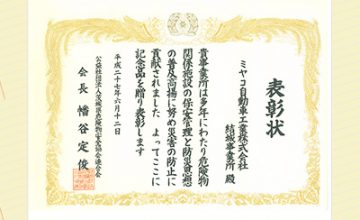 表彰状
ミヤコ自動車工業株式会社
結城事業所 殿
貴事業所は多年にわたり危険物
関係施設の保安管理と防災思想
の普及高揚に努め災害の防止に
貢献されました よってここに
記念品を贈り表彰します
平成二十七年六月十二日
公益社団法人茨城県危険物安全協会連合会
会長 幡谷定俊